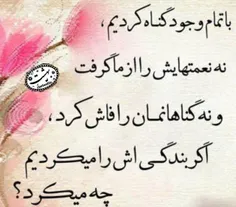 با تمام وجود گناه کردیم،
نه نعمتهایش را از ما گرفت
و نه گناهانمان را فاش کرد،
اگر بندگی اش را میکردیم
چه میکرد؟